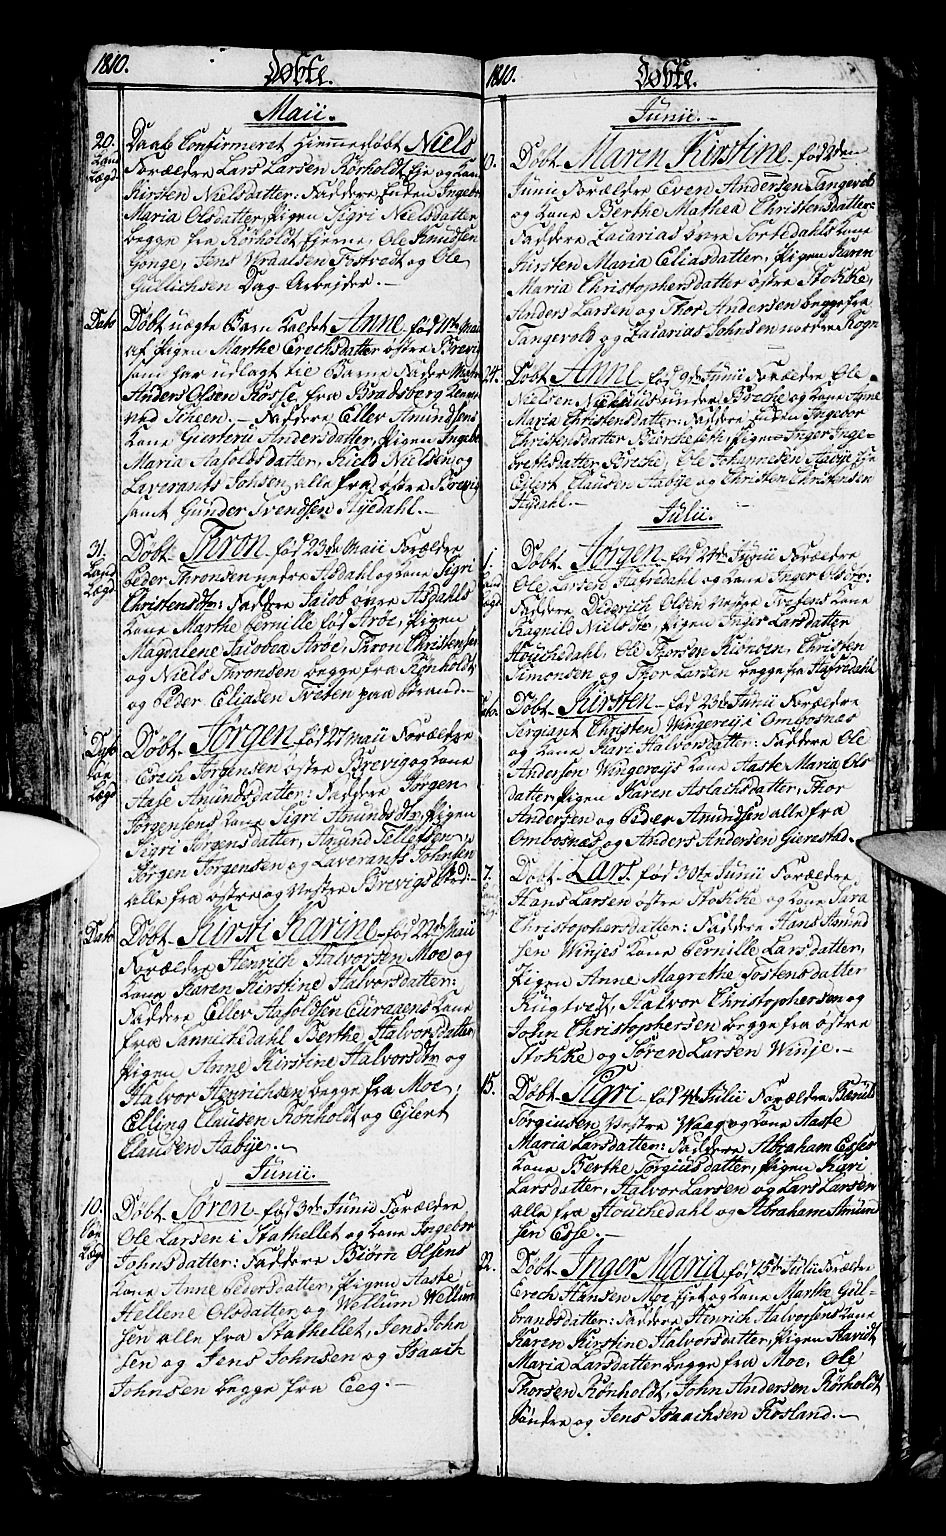 1810.
Døbte.
Maii.
20. Daab Confirmeret Hiemmedøbt Niels
Land Forældre Lars Larsen Rörholdt Eje og Kone
Lægd Kirsten Nielsdatter: Faddere Enken Ingebor
Maria Olsdatter, Pigen Sigri Nielsdatter
begge fra Rörholdt Ejerne, Ole Knudsen
Gonge, Jens Wraalsen Tostvedt og Ole
Gullichsen Dag Arbejder.
Dato Døbt uægte Barn kaldet Anne, fød 11te Maii
af Pigen Marthe Erechsdatter østre Brevig
som har udlagt til Barne Fader
Anders Olsen Kosse, fra Bradsberg
ved Scheen. Faddere Eller Amundsens
Kone Giertru Andersdatter, Pigen Ingebor
Maria Aafoldsdatter, Kield Nielsen og
Laverants Johsen, alle fra østre Brevig
samt Gunder Svendsen Hyedahl.
31. Døbt Thron fød 23de Maii Forældre
Land Peder Thronsen nedre Asdahl og Kone Sigri
Lægd Christensdtr: Faddere Jacob øvre Asdahls
Kone Marthe Pernille fød Aröe, Pigen
Magdalene Jacobea Aröe, Thron Christensen
og Niels Thronsen begge fra Rönholdt
og Peder Eliasen Tveten paa Strand.
Dato Døbt Jørgen fød 27 Maii Forældre
Søe Erech Jørgensen østre Brevig og Kone
Lægd Aase Amundsdatter: Faddere Jørgen
Jørgensens Kone Sigri Amundsdtr, Pigen
Sigri Jørgensdatter, Amund Tellefsen,
Jørgen Jørgensen og Laverants Johnsen
alle fra østre og Vestre Brevigs
Dato Døbt Kirsti Karine fød 22de Maii
Forældre Henrich Halvorsen Moe og
Kone Karen Kirstine Halvorsdatter:
Faddere Eller Aafoldsen Eüragens Kone
fra Sannekedahl Berthe Halvorsdatter,
Pigen Anne Kirstine Halvorsdtr og
Halvor Henrichsen begge fra Moe,
Elling Clausen Rönholdt og Ejlert
Clausen Aabye.
Junii.
10. Døbt Søren fød 3de Junii Forældre
Søe Ole Larsen i Stathellet og Kone Ingebor
Lægd Johnsdatter: Faddere Biørn Olsens
Kone Anne Pedersdatter, Pigen Aaste
Hellene Olsdatter og Wellum Wellum
sen alle fra Stathellet, Jens John
sen og Jens Johnsen og Isaach
Johnsen begge fra Eeg.
1810.
Døbte.
Junii.
Døbt Maren Kirstine fød 2den
Junii Forældre Even Andersen Tangevol
og Kone Berthe Mathea Christensdatter:
Faddere Zacarias øvre Tortedahls Kone
Kirsten Maria Eliasdatter, Pigen Karen
Maria Christophersdatter østre Stokke,
Anders Larsen og Thor Andersen begge fra
Tangevold og Zacarias Johnsen nordre Rogn
24. Døbt Anne fød 9de Junii Forældre Ole
Nielsen under Breche og Kone Anne
Maria Christensdatter: Faddere Enken Ingebor
Christensdatter Pigen Inger Inge-
brethsdatter Breche, Ole Johannesen Aabye Eje
Ejlert Clausen Aabye og Christen Christensen
Hydahl.
Julii.
1. Døbt Jørgen fød 24de Junii Forældre
Land Ole Larsen Hafredahl og Kone Inger Olsdtr:
Lægd Faddere Diderich Olsen Vestre Tvetens Kone
Ragnild Nielsdtr, Pigen Inger Larsdatter
Houchedahl, Ole Thorsen Kiönsen, Christen
Simonsen og Thor Larsen begge fra Hafredahl
Dato. Døbt Kirsten fød 23de Junii Forældre
Sergiant Christen Wingereji Ombosnæs
og Kone Kari Halvorsdatter: Faddere Ole
Andersen Wingerejs Kone Aaste Maria Ols
datter, Pigen Karen Aslachsdatter, Thor
Andersen og Peder Amundsen alle fra
Ombosnæs og Anders Andersen Gurestad.
7. Døbt Lars fød 30te Junii Forældre
Hans Larsen østre Stokke og Kone Sara
Christophersdatter: Faddere Hans Amund
sen Winjes Kone Pernille Larsdatter,
Pigen Anne Magrethe Tostensdatter
Rugtvedt, Halvor Christophersen og
John Christophersen begge fra østre
Stokke og Søren Larsen Winje.
15. Døbt Sigri fød 4de Julii Forældre
Torgiusen Vestre Waag og Kone Aaste
Maria Larsdatter: Faddere Abraham Esses
Kone Berthe Torgiusdatter, Pigen Kari
Larsdatter, Halvor Larsen og Lars Larsen
alle fra Houchedahl og Abraham Amund
sen Esse.
22. Døbt Inger Maria fød 15de Julii Forældre
Erech Hansen Moe Ejet og Kone Marthe Gull-
brandsdatter: Faddere Henrich Halvorsens Kone
Karen Kirstine Halvorsdatter, Pigen Havidt
Maria Larsdatter begge fra Moe, Ole
Thorsen Rönholdt, John Andersen Rörholdt
Søndre og Jens Isaachsen Rosland.